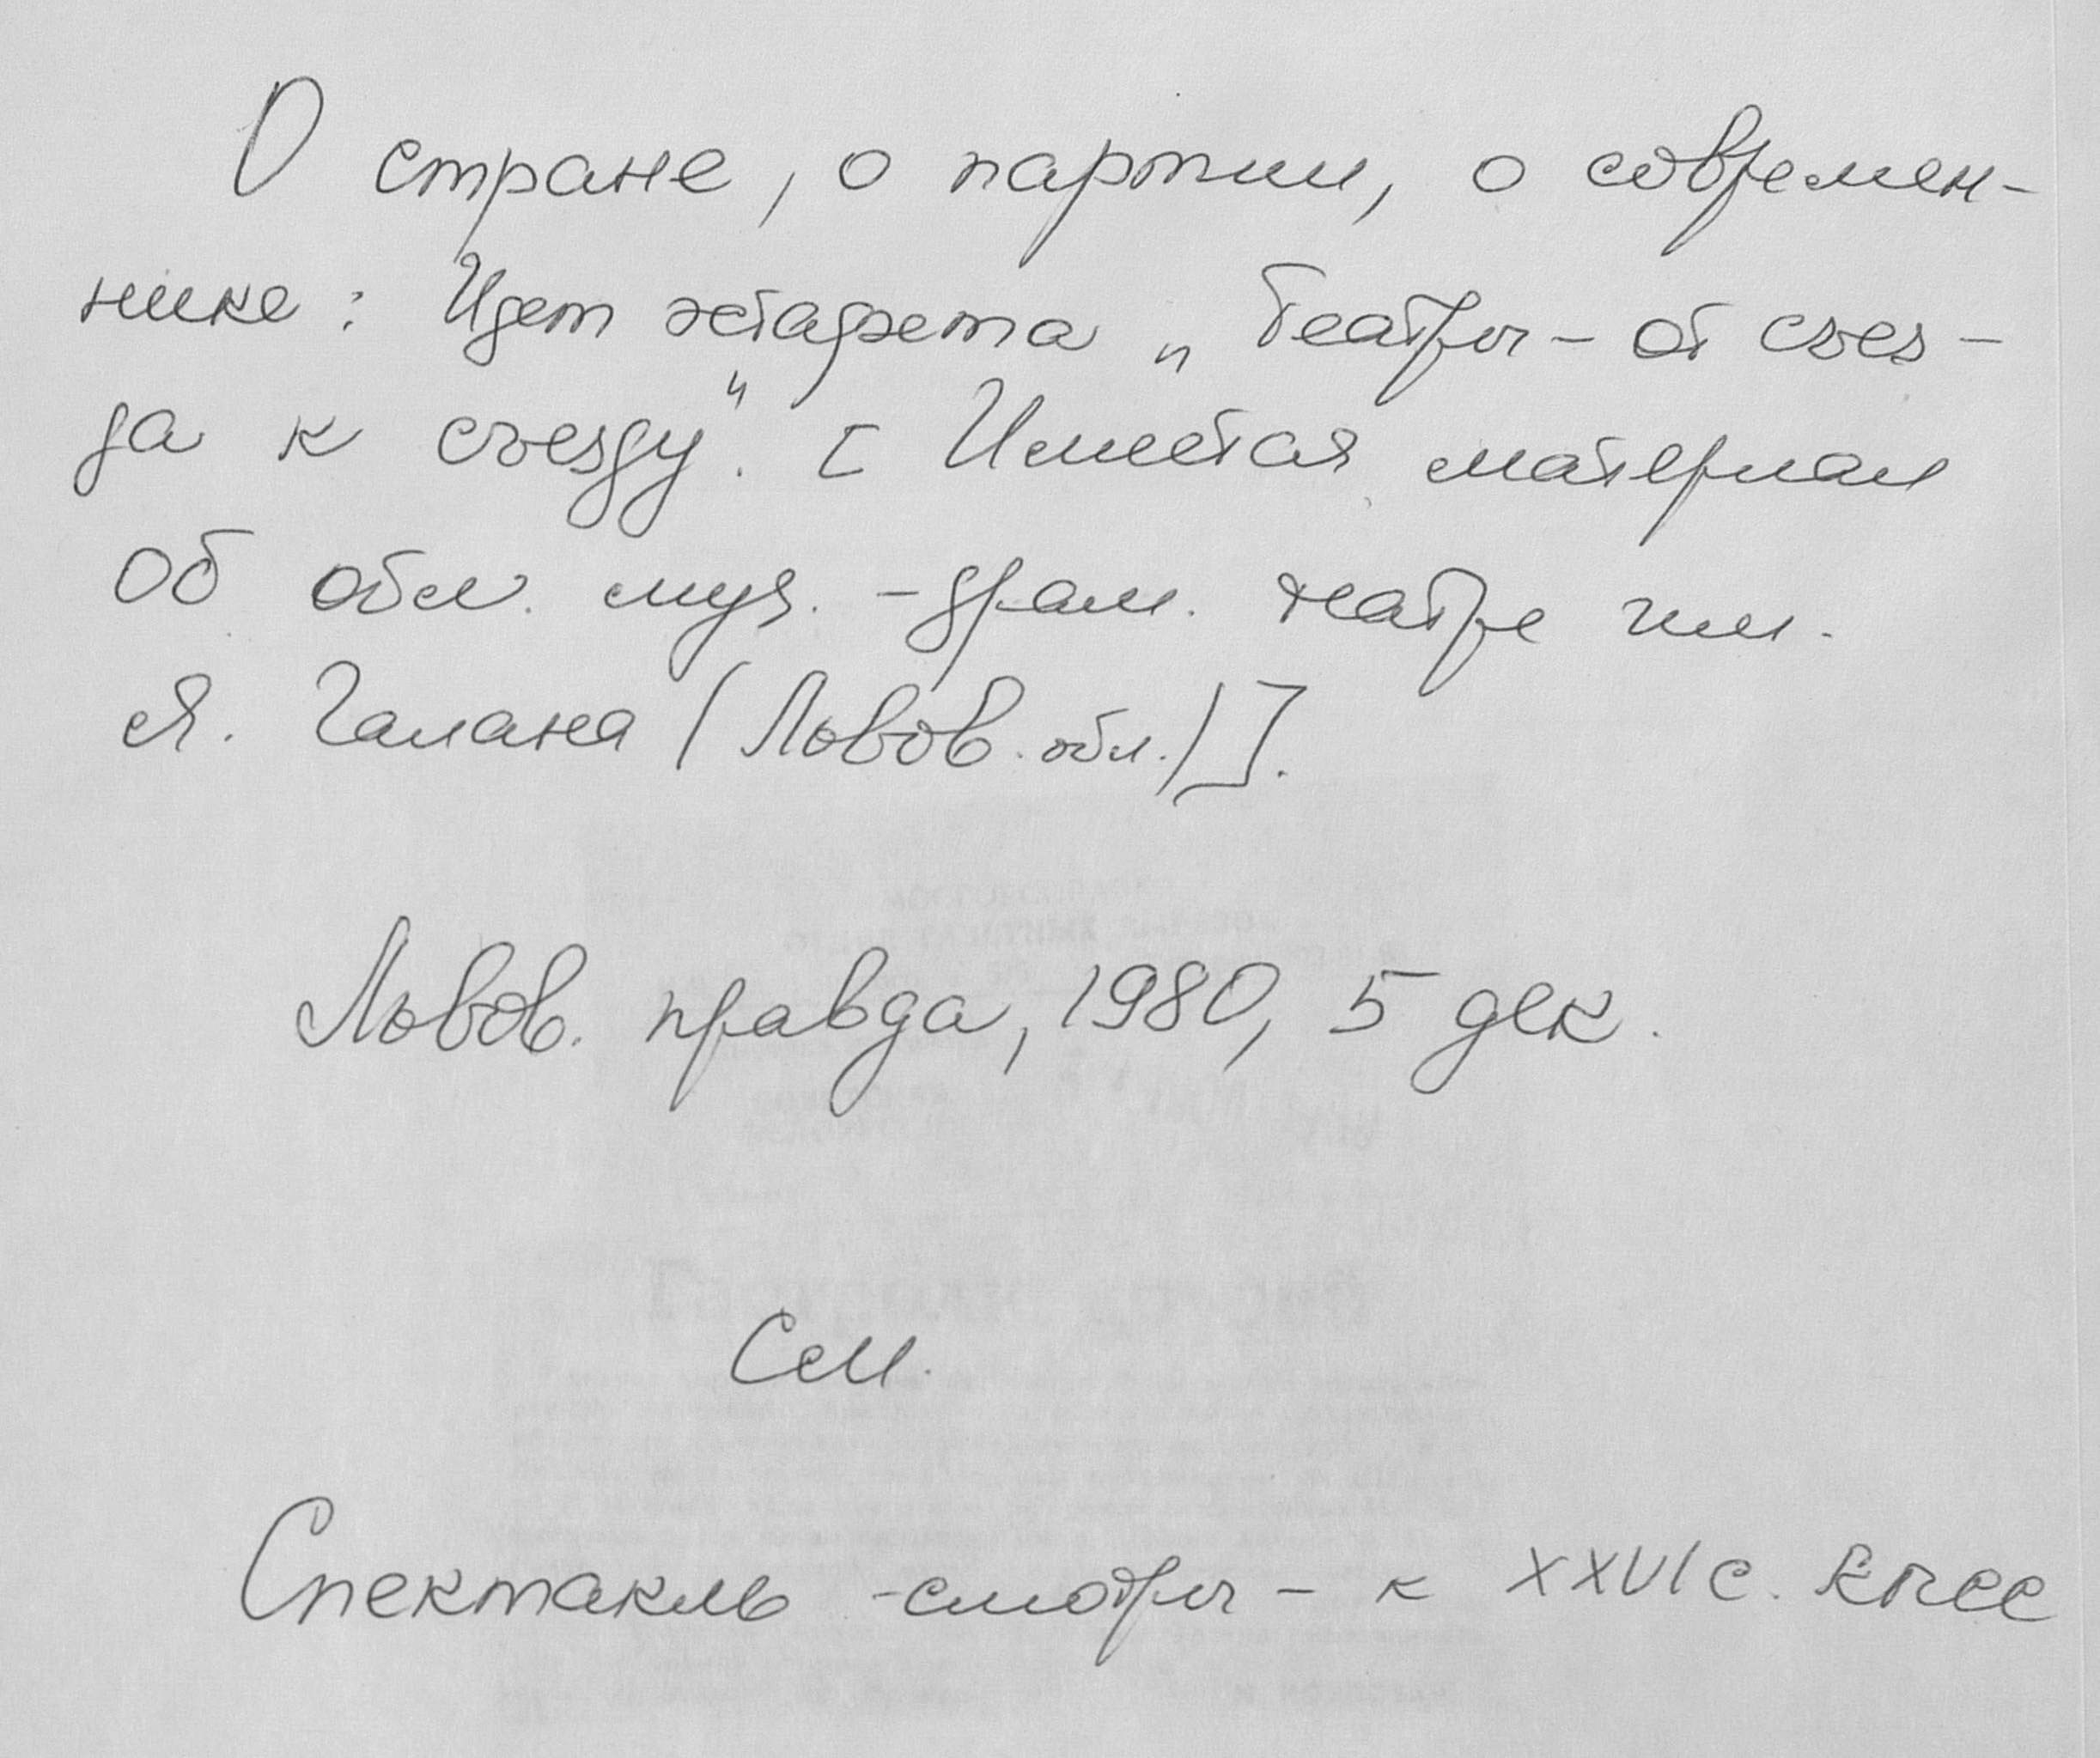 О стране, о партии, о современ-
нике: Идет эстафета „Театры - от съез-
да к съезду". [Имеется материал
об обл. муз.-драм. театре им.
Я. Галана (Львов. обл.)].
Львов. правда, 1980, 5 дек.
См.
Спектакль - смотры - к XXVI с. КПСС